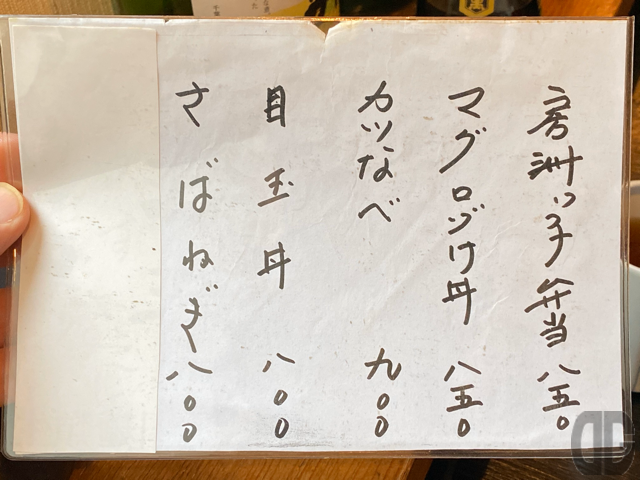 房洲っ子弁当 八五〇
マグロづけ丼 八五〇
カツなべ 九〇〇
目玉丼 八〇〇
さばねぎ 八〇〇